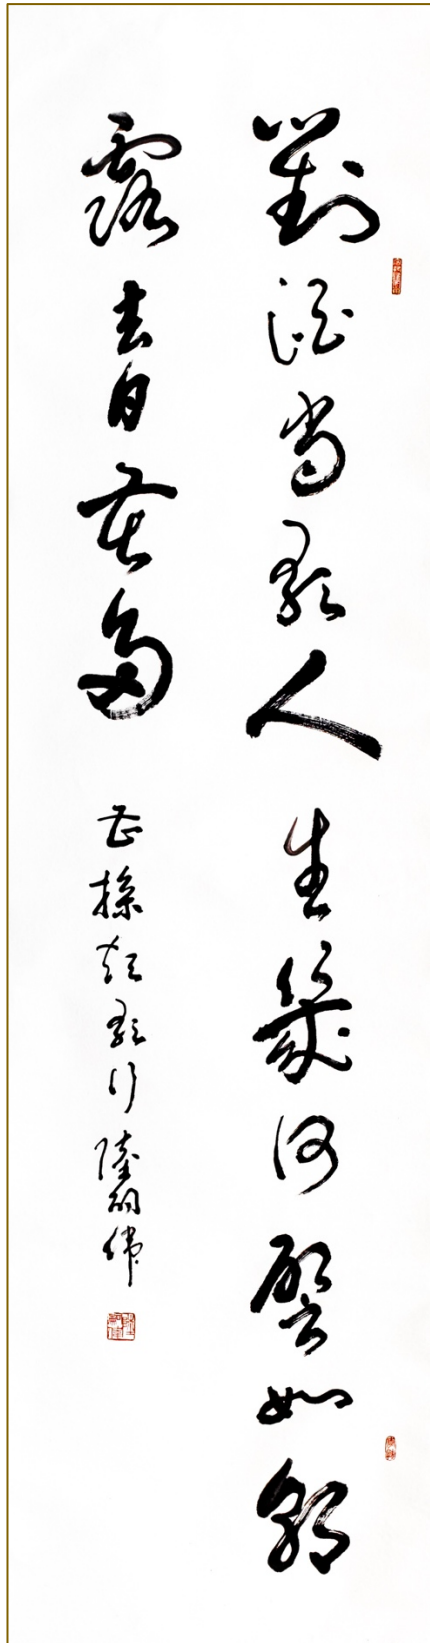 對酒當歌人生幾何譬如朝
露去日苦多 曹操短歌行 陸偉